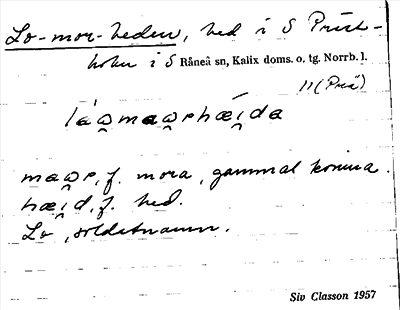 Lo-mor-heden, hed i S Präst-
holm i S Råneå sn, Kalix doms. o. tg. Norrb. l.
11 (Prä)
láωmaωrhæ̀i̯da
maωr, f. mora, gammal kvinna.
hæi̯d, f. hed.
Lo, soldatnamn.
Siv Classon 1957